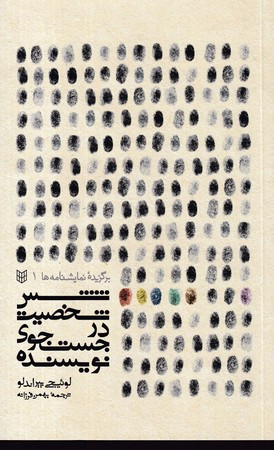 برگزیدهٔ نمایشنامه‌ها ۱
شش
شخصیت
در
جست‌جوی
نویسنده
لوئیجی پیراندلو
ترجمهٔ بهمن فرزانه